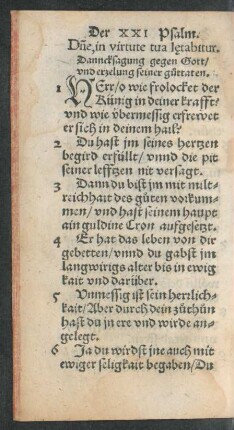 Der XXI Psalm.
Dñe, in virtute tua lętabitur.
Dancksagung gegen Gott/
vnd erzelung seiner gůttaten.
1 HErr/o wie frolocket der
Künig in deiner krafft/
vnd wie vbermessig erfrewet
er sich in deinem hail?
2 Du hast jm seines hertzen
begird erfüllt/ vnnd die pit
seiner lefftzen nit versagt.
3 Dann du bist jm mit milt-
reichhait des gůten vorkum-
men/ vnd hast seinem haupt
ain guldine Cron auffgesetzt.
4 Er hat das leben von dir
gebetten/ vnnd du gabst jm
langwirigs alter bis in ewig
kait vnd darüber.
5 Vnmessig ist sein herrlich-
kait/ Aber durch dein zůthůn
hast du jn ere vnd wirde an-
gelegt.
6 Ja du wirdst jne auch mit
ewiger seligkait begaben/ Du